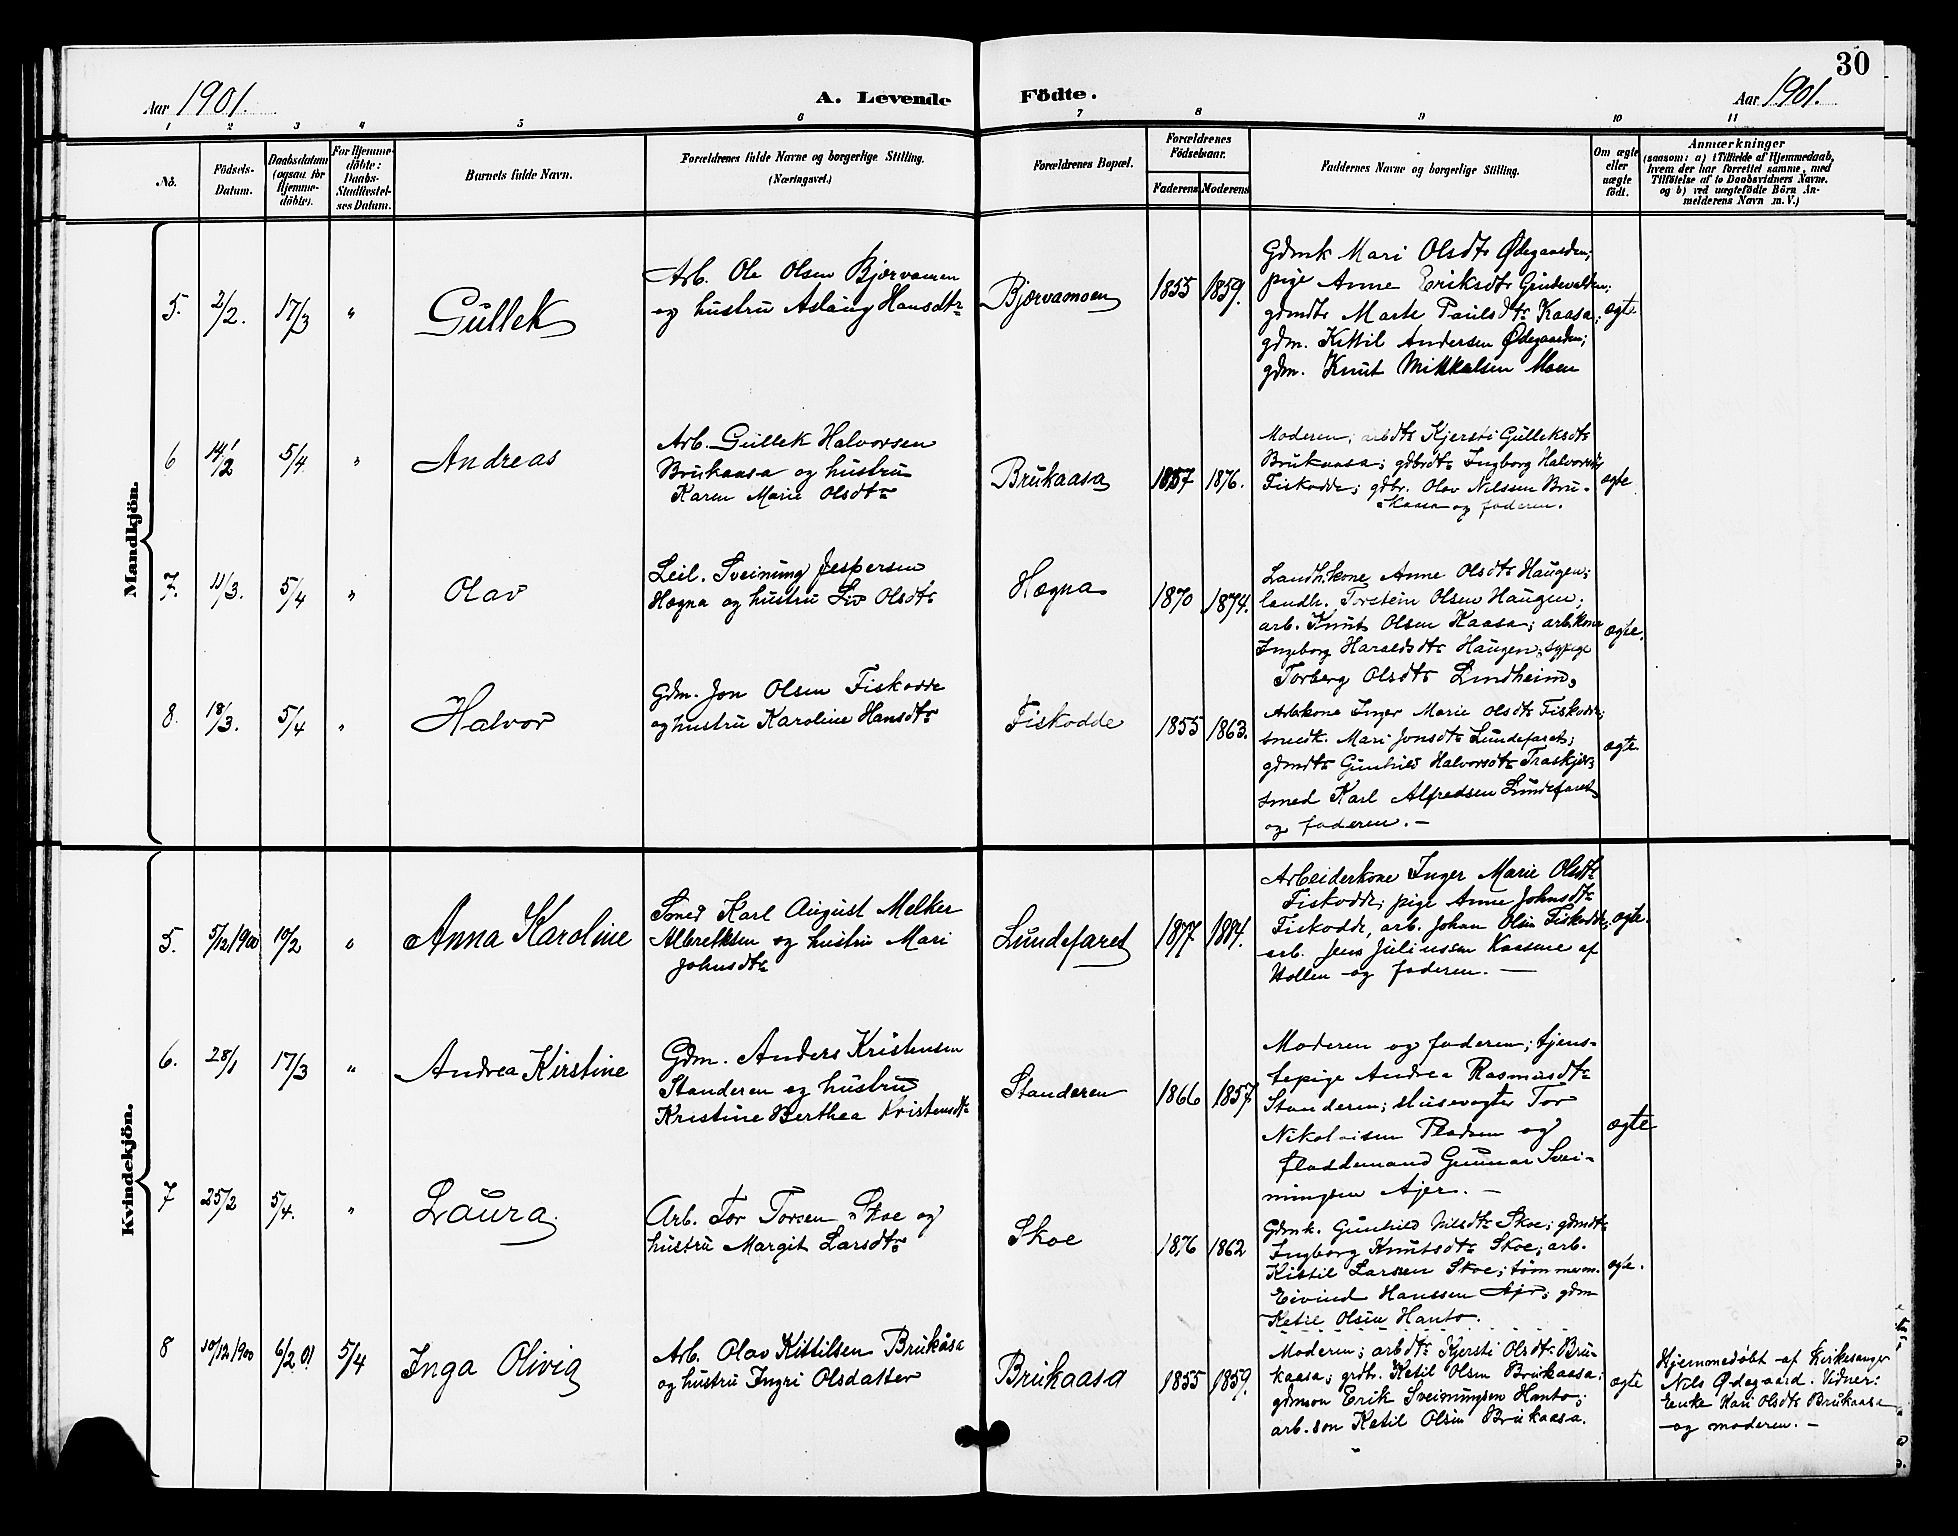 30
Aar 1901.
A. Levende Födte.
Aar 1901.
1 2 3 4 5 6 7 8 9 10 11
No.
Födsels-
Datum.
Daabsdatum
(ogsaa for
Hjemme-
döbte).
For Hjemme-
döbte:
Daabs-
Stadfæstel-
ses Datum.
Barnets fulde Navn.
Forældrenes fulde Navne og borgerlige Stilling.
(Næringsvei.)
Forældrenes Bopæl.
Forældrenes
Födselsaar.
Faderens
Moderens
Faddernes Navne og borgerlige Stilling.
Om ægte
eller
uægte
födt.
Anmærkninger
(saasom: a) i Tilfælde af Hjemmedaab,
hvem der har forrettet samme, med
Tilföielse af to Daabsvidners Navne.
og b) ved uægtefödte Börn An-
melderens Navn m. V.)
Mandkjön.
5. 2/2. 17/3 "
Gullek
Arb. Ole Olsen Bjørvamoen
og hustru Aslaug Hansdtr
Bjørvamoen
1855 1859.
Gdmk Mari Olsdtr Ødegaarden;
pige Anne Eriksdtr
gdmdtr Marte Paulsdtr Kaasa;
gdm. Kittil Andersen Ødegaarden;
gdm. Knut Mikkelsen Moen
ægte.
6 14/2 5/4 "
Andreas
Arb. Gullek Halvorsen
Brukaasa og hustru
Karen Marie Olsdtr
Brukaasa
1857 1876.
Moderen; arbdtr Kjersti Gulleksdtr
Brukaasa; gdbrdtr Ingborg Halvorsdtr
Fiskodde; gdbr. Olav Nilssen Bru-
kaasa og faderen.
ægte
7. 11/3. 5/4 "
Olav
Leil. Sveinung Jespersen
Hægna og hustru Liv Olsdtr
Hægna
1870 1874.
Landh.kone Anne Olsdtr Haugen;
landh. Torstein Olsen Haugen;
arb. Knut Olsen Kaasa; arb.kone
Ingeborg Haraldsdtr Haugen, sypige
Torberg Olsdtr Lindheim,
ægte.
8. 18/3. 5/4 "
Halvor
Gdm. Jon Olsen Fiskodde
og hustru Karoline Hansdtr
Fiskodde
1855 1863.
Arbkone Inger Marie Olsdtr Fiskodde;
smedk. Mari Jonsdtr Lundefaret;
gdmdtr Gunhild Halvorsdtr
smed Karl Alfredsen Lundefaret
og faderen. –
ægte
Kvindekjön.
5. 5/12 1900 10/2 "
Anna Karoline
Smed Karl August Melker
Albretksen og hustru Mari
Johnsdtr
Lundefaret
1877 1884.
Arbeiderkone Inger Marie Olsdtr
Fiskodde; pige Anne Johnsdtr
Fiskodde, arb. Johan Olsen Fiskodde;
arb. Jens Juliussen Kaasene af
Hollen og faderen. –
ægte.
6. 28/1 17/3 "
Andrea Kirstine
Gdm. Anders Kristensen
Standeren og hustru
Kristine Berthea Kristensdtr
Standeren
1866 1857
Moderen og faderen; tjens-
tepige Andrea Rasmusdtr
Standeren; slusevogter Tor
Nikolaisen Pladsen og
fladdemand Gunnar Svei-
nungsen Ajer. –
ægte
7 25/2 5/4. "
Laura
Arb. Tor Torsen Skoe og
hustru Margit Larsdtr
Skoe
1876 1862
Gdmk. Gunhild Nilsdtr Skoe; gdmdtr
Ingborg Knutsdtr Skoe; arb.
Kittil Larssen Skoe; tømmerm.
Eivind Hanssen Ajer; gdm
Ketil Olsen Hanto.
ægte.
8 10/12 1900 6/2 01 5/4
Inga Olivia
Arb. Olav Kittilsen Brukåsa
og hustru Ingri Olsdatter
Brukaasa
1855 1859.
Moderen; arbdtr Kjersti Olsdtr Bru-
kaasa; grdbr. Ketil Olsen Brukaasa;
gdmson Erik Sveinungsen Hanto;
arb.son Ketil Olsen Brukaasa.
ægte
Hjemmedøbt af Kirkesanger
Nils Ødegaard. Vidner:
Enke Kari Olsdtr Brukaasa
og moderen. –